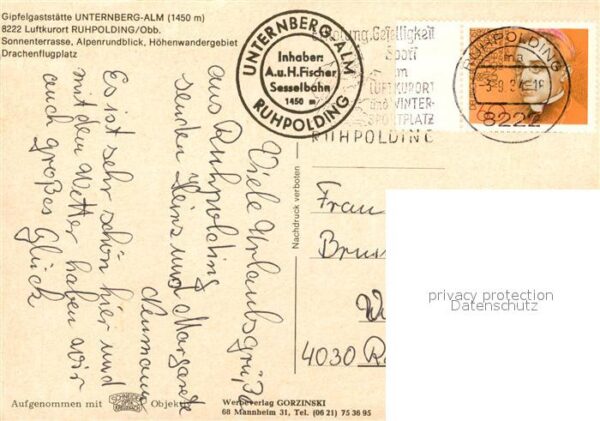 Gipfelgaststätte UNTERNBERG-ALM (1450 m)
8222 Luftkurort RUHPOLDING/Obb.
Sonnenterrasse, Alpenrundblick, Höhenwandergebiet
Drachenflugplatz
UNTERNBERG-ALM
Inhaber:
A.u.H.Fischer
Sesselbahn
1450 m
RUHPOLDING
Erholung, Geselligkeit
Sport
im
LUFTKURORT
und WINTER-
SPORTPLATZ
RUHPOLDING
RUHPOLDING
8222
Viele Urlaubsgrüße
aus Ruhpolding
senden Heinz und Margarete
Neumann
Es ist sehr schön hier und
mit dem Wetter haben wir
auch großes Glück
Nachdruck verboten
Frau
4030
privacy protection
Datenschutz
Aufgenommen mit SCHNEIDER KREUZNACH Objektiv
Werbeverlag GORZINSKI
68 Mannheim 31, Tel. (06 21) 75 36 95